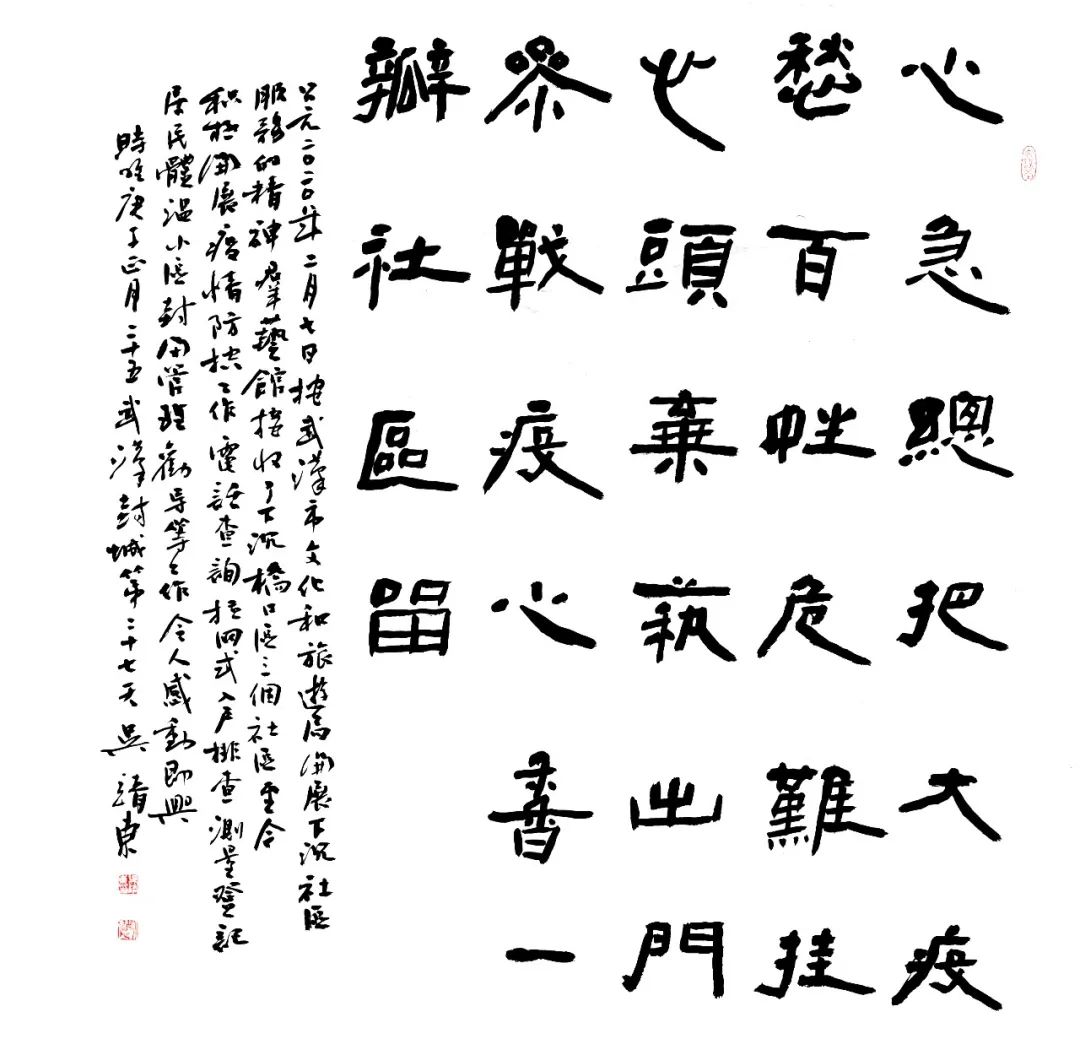 心急總把大疫
愁百姓危難挂
心頭棄執出門
參戰疫心香一
瓣社區留
公元二〇二〇年二月七日按武漢市文化和旅遊局開展下沉社區
服務的精神羣藝館接收了下沉橋口區三個社區至今
积極開展疫情防控工作電話查詢拉网式入戶排查測量登記
居民體温小區封閉管理勸导等工作令人感動即興
時唯庚子正月二十五武漢封城第二十七天吳